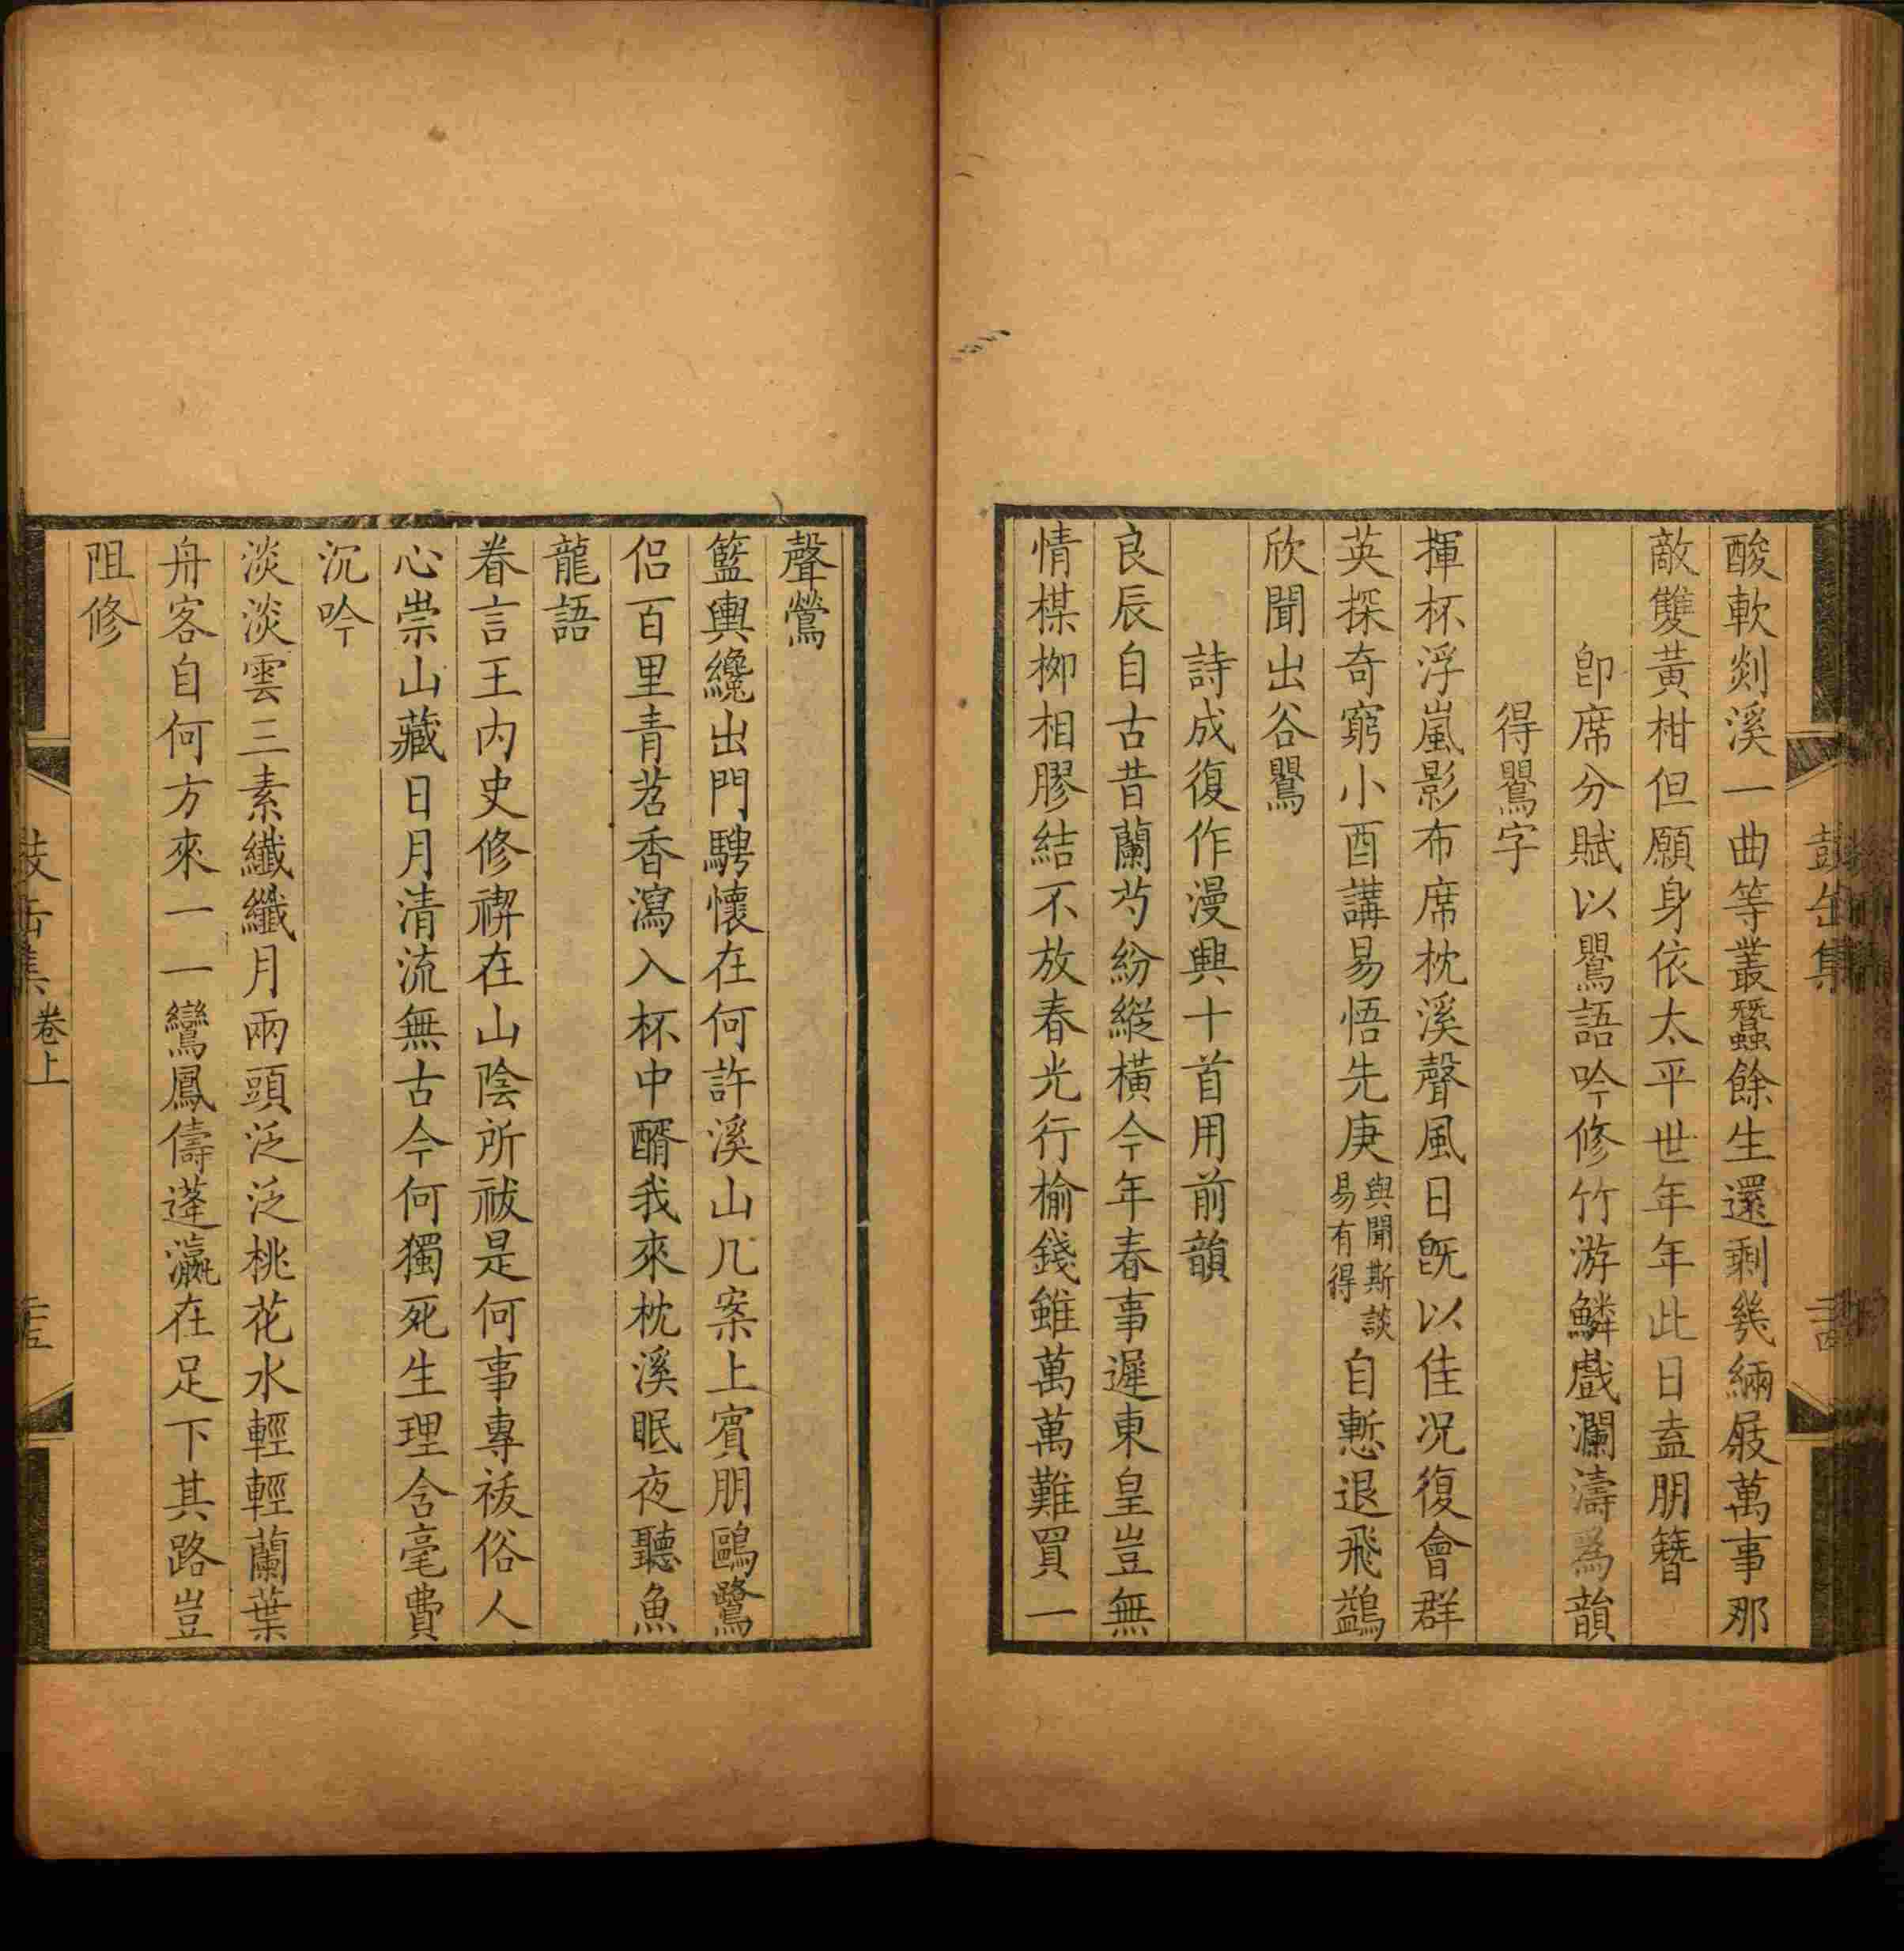 酸軟剡溪一曲等叢蠶餘生還剩幾緉屐萬事那
敵雙黃柑但願身依太平世年年此日盍朋簪
卽席分賦以鸎語吟修竹游鱗戲瀾濤爲韻
得鸎字
揮杯浮嵐影布席枕溪聲風日旣以佳况復會群
英探奇窮小酉講易悟先庚與聞斯談易有得自慙退飛鷁
欣聞出谷鸎
詩成復作漫興十首用前韻
良辰自古昔蘭芍紛縱橫今年春事遲東皇豈無
情楳栁相膠結不放春光行榆錢雖萬萬難買一
聲鶯
籃輿纔出門騁懷在何許溪山几案上賓朋鷗鷺
侶百里青若香瀉入杯中醑我來枕溪眠夜聽魚
龍語
眷言王內史修禊在山陰所祓是何事專祓俗人
心崇山藏日月清流無古今何獨死生理含毫費
沉吟
淡淡雲三素纖纖月兩頭泛泛桃花水輕輕蘭葉
舟客自何方來一一鸞鳳儔蓬瀛在足下其路豈
阻修
鼓缶集
卷上